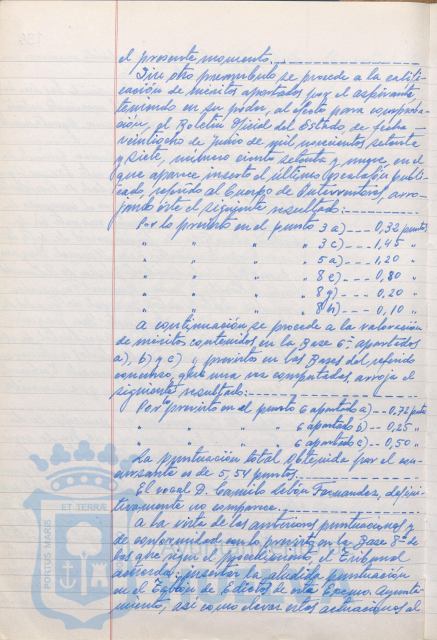 el presente momento.
Sin otro preambulo se procede a la califi-
cación de méritos aportados por el aspirante,
teniendo en su poder, al efecto para comproba-
ción, el Boletín Oficial del Estado, de fecha
veintiocho de junio de mil novecientos setenta
y siete, número ciento setenta y nueve, en el
que aparece inserto el último escalafón publi-
cado, referido al Cuerpo de Interventores, arro-
jando éste el siguiente resultado:
Por lo previsto en el punto 3 a) --- 0,32 puntos
" " " " 3 c) --- 1,45 "
" " " " 5 a) --- 1,20 "
" " " " 8 e) --- 0,80 "
" " " " 8 g) --- 0,20 "
" " " " 8 h) --- 0,10 "
A continuación se procede a la valoración
de méritos contenidos en la Base 6ª apartados
a), b) y c) y previsto en las Bases del referido
concurso, que una vez computados, arroja el
siguiente resultado:
Por previsto en el punto 6 apartado a) -- 0,72 ptos
" " " " 6 apartado b) -- 0,25 "
" " " " 6 apartado c) -- 0,50 "
La puntuación total obtenida por el con-
cursante es de 5,54 puntos.
El vocal D. Camilo Lebón Fernandez, defini-
tivamente no comparece.
A la vista de las anteriores puntuaciones y
de conformidad con lo previsto en la Base 3ª de
las que rigen el procedimiento el Tribunal
acuerda: insertar la aludida puntuación
en el Tablón de Edictos de este Excmo. Ayunta-
miento, así como elevar estas actuaciones al
PORTUS MARIS
ET TERRE